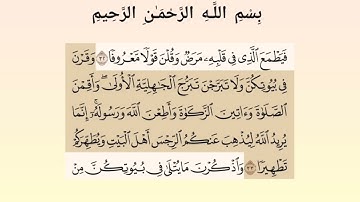 بِسْمِ اللَّهِ الرَّحْمَٰنِ الرَّحِيمِ
فَيَطْمَعَ ٱلَّذِى فِى قَلْبِهِۦ مَرَضٌ وَقُلْنَ قَوْلًا مَّعْرُوفًا ٣٢ وَقَرْنَ
فِى بُيُوتِكُنَّ وَلَا تَبَرَّجْنَ تَبَرُّجَ ٱلْجَٰهِلِيَّةِ ٱلْأُولَىٰ ۖ وَأَقِمْنَ
ٱلصَّلَوٰةَ وَءَاتِينَ ٱلزَّكَوٰةَ وَأَطِعْنَ ٱللَّهَ وَرَسُولَهُۥٓ ۚ إِنَّمَا
يُرِيدُ ٱللَّهُ لِيُذْهِبَ عَنكُمُ ٱلرِّجْسَ أَهْلَ ٱلْبَيْتِ وَيُطَهِّرَكُمْ
تَطْهِيرًا ٣٣ وَٱذْكُرْنَ مَا يُتْلَىٰ فِى بُيُوتِكُنَّ مِنْ